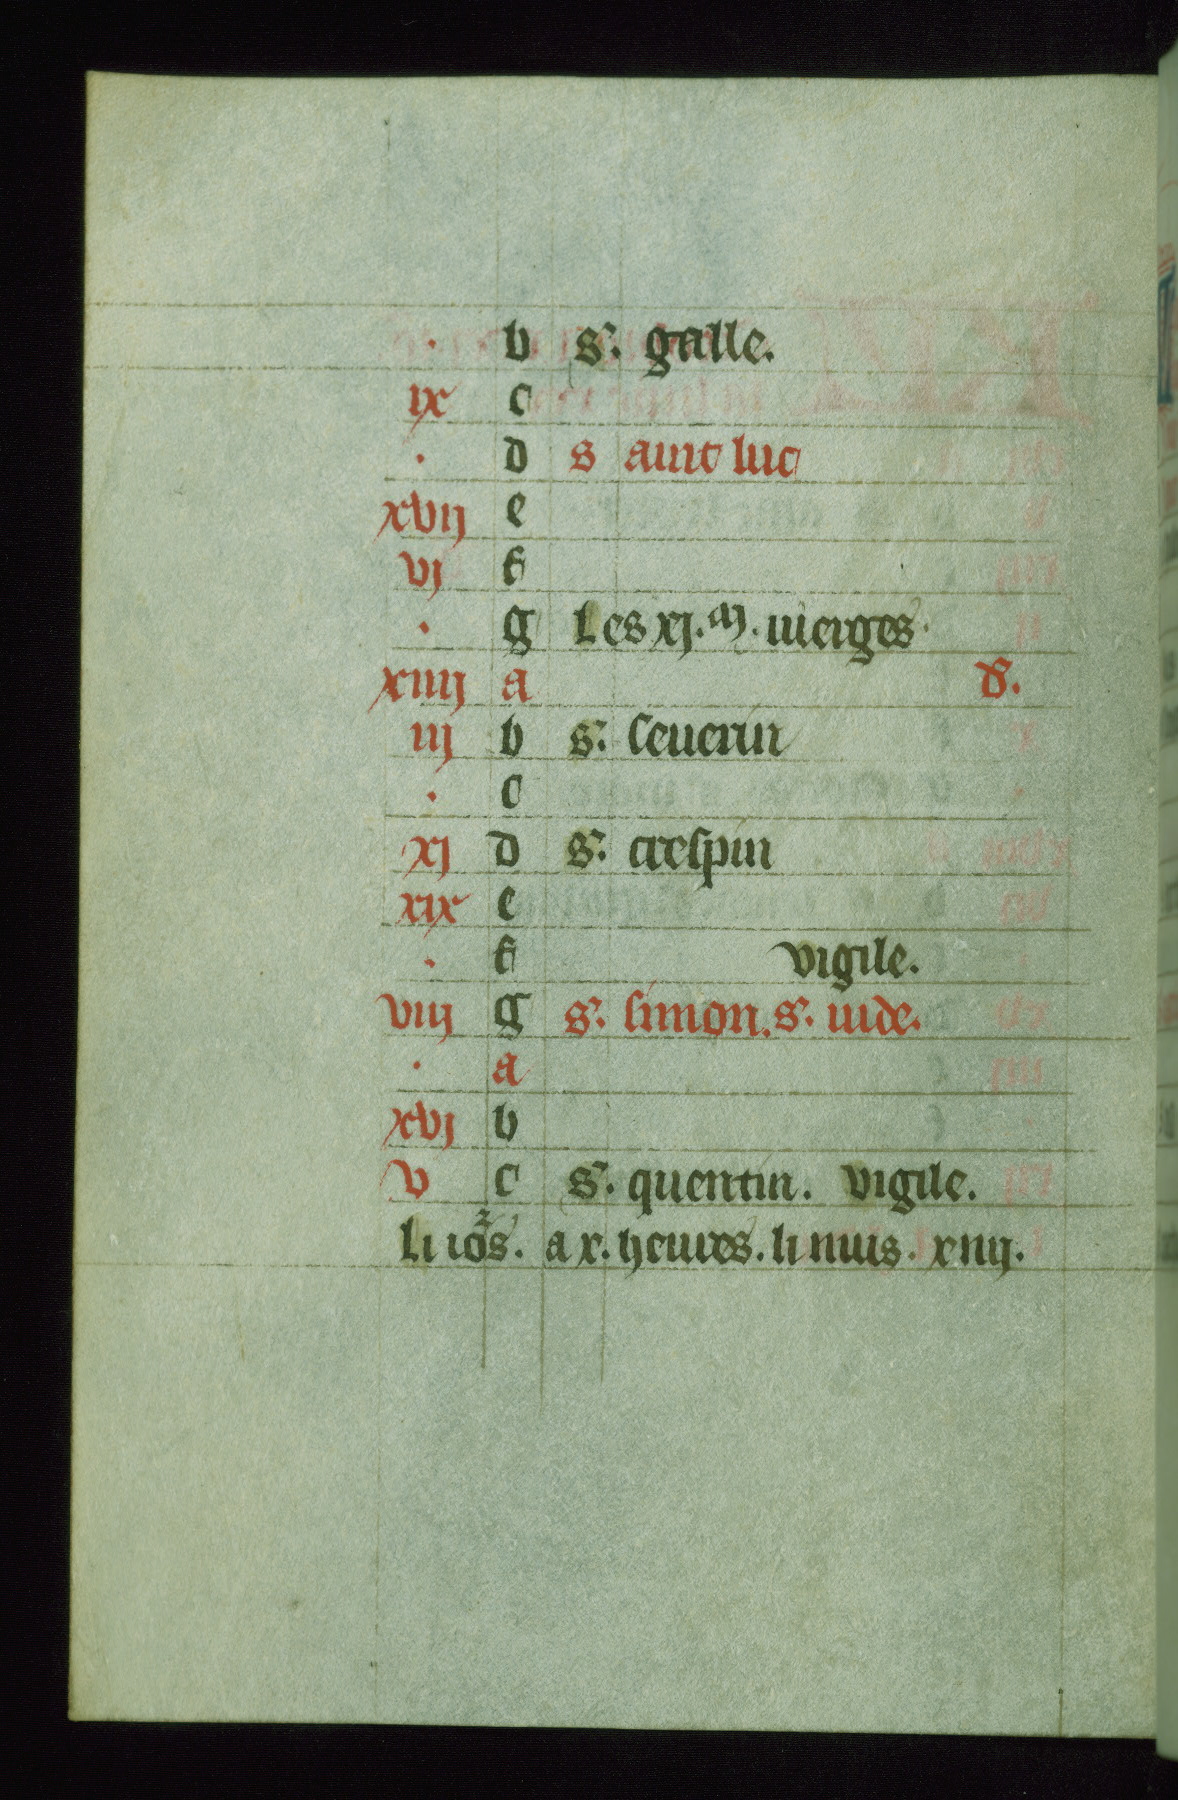 . b s'. galle.
ix c
. d saint luc
xvij e
vj f
. g Les xj. M. uierges.
xiiij a d'.
iij b s'. seuerin
. c
xj d s'. crespin
xix e
. f vigile.
viij g s'. simon. s'. iude.
. a
xvj b
v c s'. quentin. vigile.
Li iors. a x. heures. li nuis. xiiij.